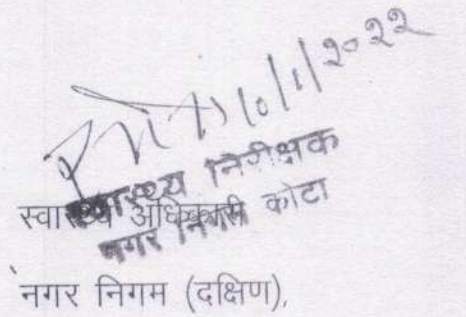 10/1/२०२२
स्वास्थ्य निरीक्षक
नगर निगम कोटा
स्वास्थ्य अधिकारी
नगर निगम (दक्षिण),